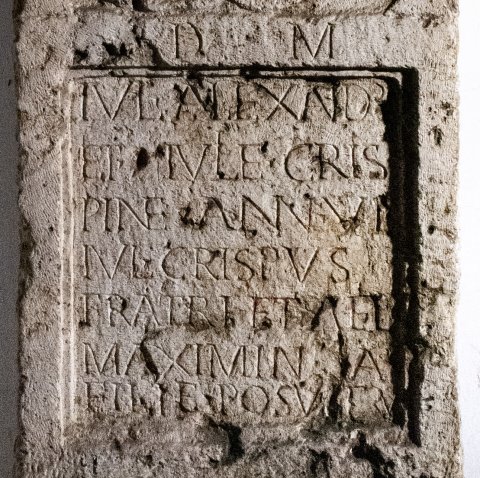 D M
IVL ALEXAND
ET IVLE CRIS
PINE ANN VI
IVL CRISPVS
FRATRI ET AEL
MAXIMINA
FILIE POSVERV